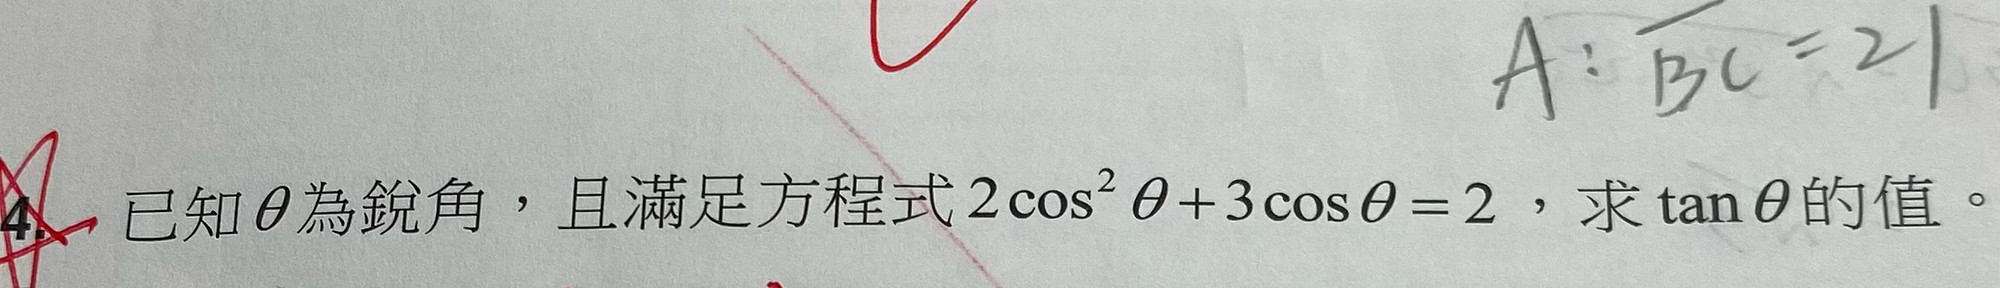 A: BC = 21
4. 已知θ為銳角，且滿足方程式 2cos² θ + 3cosθ = 2，求 tanθ 的值。